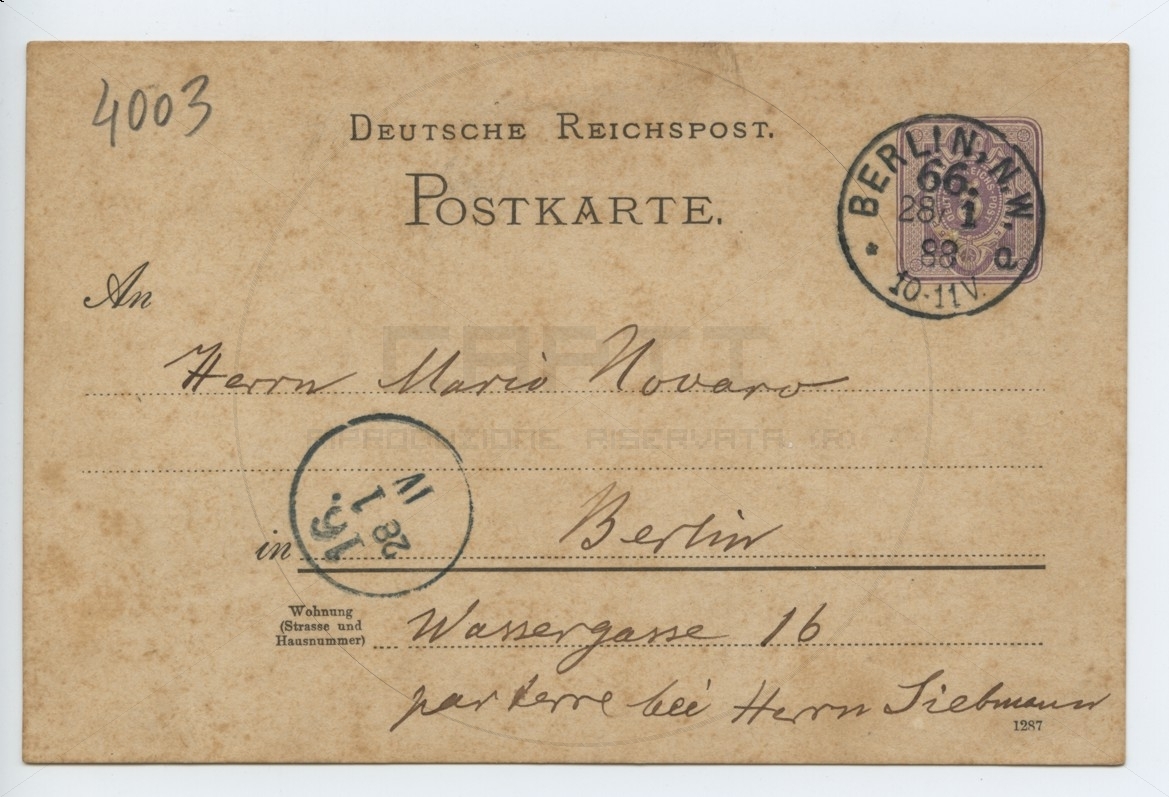 4003
DEUTSCHE REICHSPOST.
POSTKARTE.
BERLIN, N.W.
66.
28/1
88 a
10-11V.
An
Herrn Mario Novaro
RIPRODUZIONE RISERVATA (R)
IV
1
28
16.
in Berlin
Wohnung
(Strasse und
Hausnummer)
Wassergasse 16
parterre bei Herrn Siebmann
1287